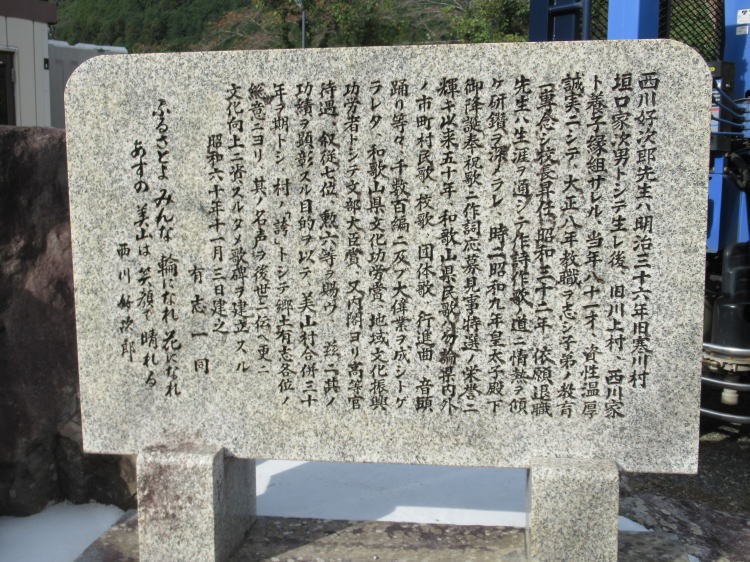 西川好次郎先生ハ明治三十六年旧寒川村
垣口家次男トシテ生レ後、旧川上村、西川家
ト養子縁組サレル、当年八十一才、資性温厚
誠実ニシテ大正八年教職ヲ志シ子弟ノ教育
一専念シ校長昇任、昭和三十二年、依願退職
先生ハ生涯ヲ通シテ作詩作歌ノ道ニ情熱ヲ傾
ケ研鑽ヲ深メラレ、時ニ昭和九年皇太子殿下
御降誕奉祝歌ニ作詞応募見事特選ノ栄誉ニ
輝キ以来五十年、和歌山県民歌ハ勿論県内外
ノ市町村民歌、校歌、団体歌、行進曲、音頭
踊リ等々、千数百編ニ及ブ大偉業ヲ成シトゲ
ラレタ、和歌山県文化功労賞、地域文化振興
功労者トシテ文部大臣賞、又内閣ヨリ高等官
待遇、叙従七位、勲六等ヲ賜ウ、茲ニ其ノ
功績ヲ顕彰スル目的ヲ以テ、美山村合併三十
年ヲ期トシ、村ノ「誇」トシテ郷土有志各位ノ
総意ニヨリ、其ノ名声ヲ後世ニ伝ヘ更ニ
文化向上ニ資スルタメ歌碑ヲ建立スル
昭和六十年十一月三日建之
有志一同
ふるさとよみんな輪になれ花になれ
あすの美山は笑顔で晴れる
西川好次郎